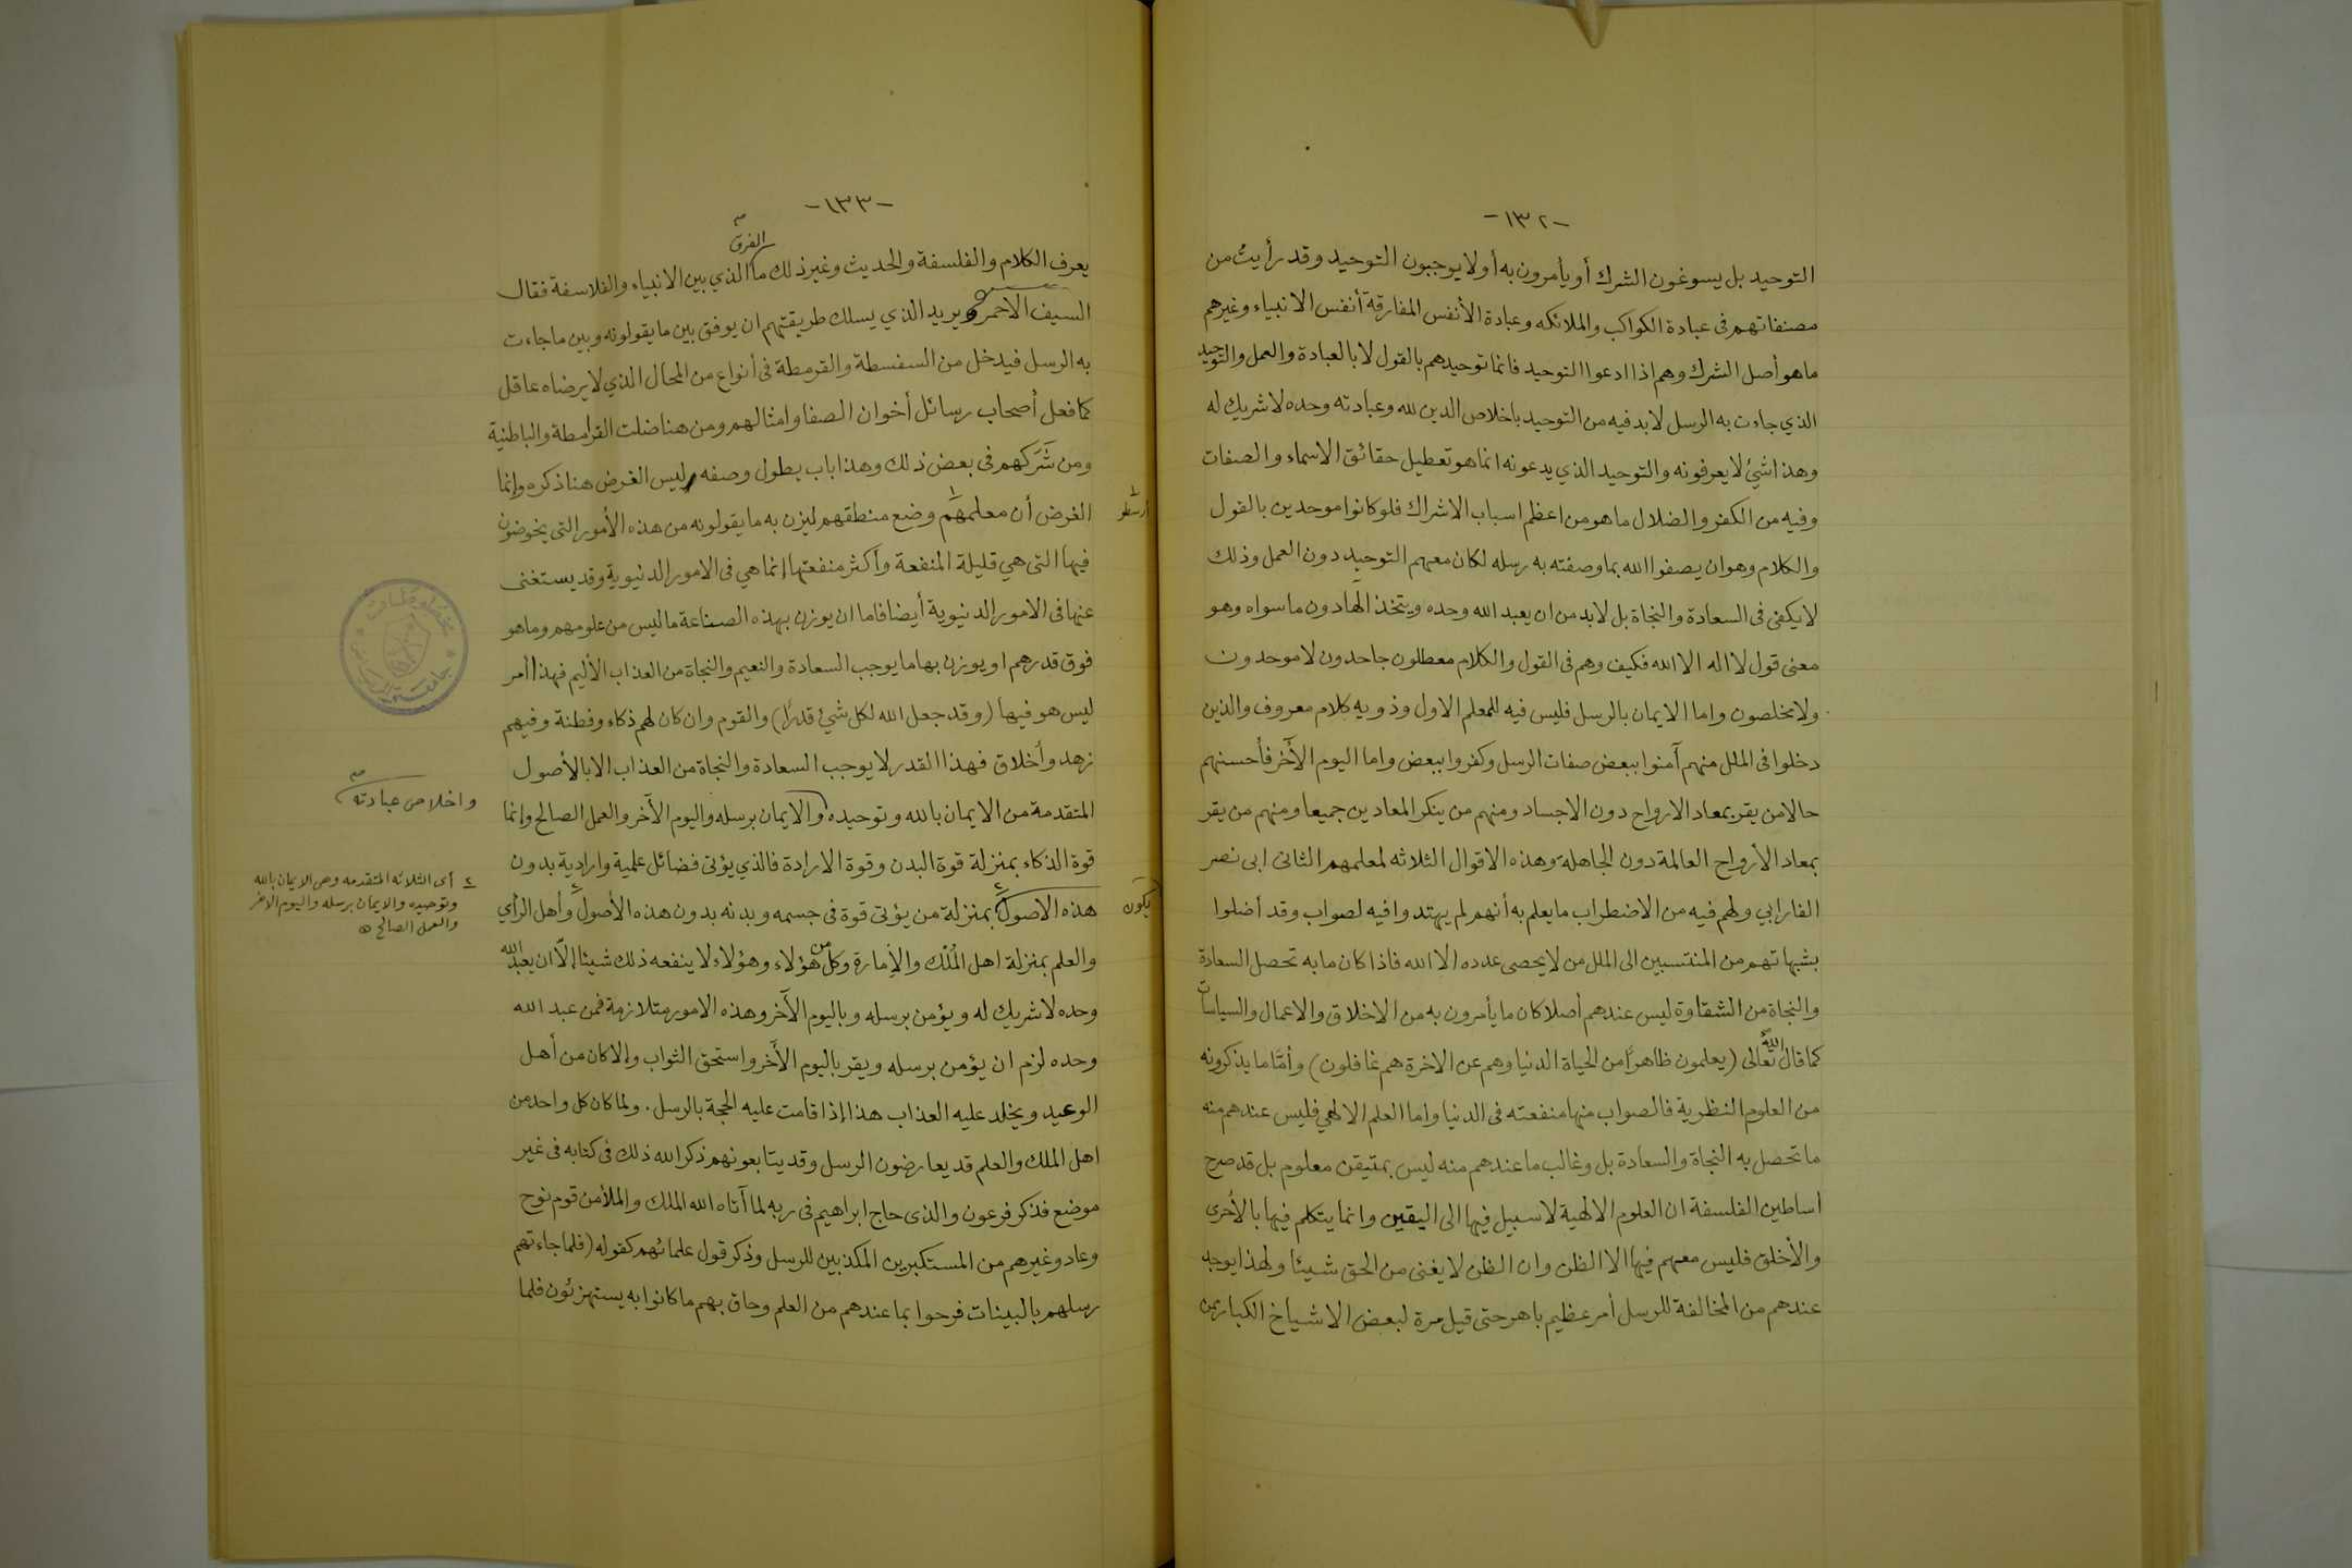 -١٣٢-
التوحيد بل يسوغون الشرك أو يأمرون به أو لا يوجبون التوحيد وقد رأيت من
مصنفاتهم فى عبادة الكواكب والملائكه وعبادة الأنفس المفارقة أنفس الانبياء وغيرهم
ما هو أصل الشرك وهم اذا ادعوا التوحيد فانما توحيدهم بالقول لا بالعبادة والعمل والتوحيد
الذي جاءت به الرسل لابد فيه من التوحيد باخلاص الدين لله وعبادته وحده لا شريك له
وهذا شيئ لا يعرفونه والتوحيد الذي يدعونه انما هو تعطيل حقائق الاسماء والصفات
وفيه من الكفر والضلال ما هو من اعظم اسباب الاشراك فلو كانوا موحدين بالقول
والكلام وهو ان يصفوا الله بما وصفته به رسله لكان معهم التوحيد دون العمل وذلك
لا يكفى فى السعادة والنجاة بل لابد من ان يعبد الله وحده ويتخذ الها دون ما سواه وهو
معنى قول لا اله الا الله فكيف وهم فى القول والكلام معطلون جاحدون لا موحدون
ولا مخلصون واما الايمان بالرسل فليس فيه للمعلم الاول وذويه كلام معروف والذين
دخلوا فى الملل منهم آمنوا ببعض صفات الرسل وكفروا ببعض واما اليوم الآخر فأحسنهم
حالا من يقر بمعاد الارواح دون الاجساد ومنهم من ينكر المعادين جميعا ومنهم من يقر
بمعاد الأرواح العالمة دون الجاهلة وهذه الاقوال الثلاثه لمعلمهم الثانى ابى نصر
الفارابي ولهم فيه من الاضطراب ما يعلم به أنهم لم يهتدوا فيه لصواب وقد أضلوا
بشبهاتهم من المنتسبين الى الملل من لا يحصى عدده الا الله فاذا كان ما به تحصل السعادة
والنجاة من الشقاوة ليس عندهم أصلا كان ما يأمرون به من الاخلاق والاعمال والسياسات
كما قال الله تعالى (يعلمون ظاهرًا من الحياة الدنيا وهم عن الاخرة هم غافلون) وأمّا ما يذكرونه
من العلوم النظرية فالصواب منها منفعته فى الدنيا واما العلم الالهي فليس عندهم منه
ما تحصل به النجاة والسعادة بل وغالب ما عندهم منه ليس بمتيقن معلوم بل قد صرح
أساطين الفلسفة ان العلوم الالهية لا سبيل فيها الى اليقين وانما يتكلم فيها بالأحرى
والأخلق فليس معهم فيها الا الظن وان الظن لا يغنى من الحق شيئا ولهذا يوجد
عندهم من المخالفة للرسل أمر عظيم باهر حتى قيل مرة لبعض الاشياخ الكبار ممن
-١٣٣-
الفرق
يعرف الكلام والفلسفة والحديث وغير ذلك ما الذي بين الانبياء والفلاسفة فقال
السيف الاحمر ويريد الذي يسلك طريقتهم ان يوفق بين ما يقولونه وبين ما جاءت
به الرسل فيدخل من السفسطة والقرمطة فى أنواع من المحال الذي لا يرضاه عاقل
كما فعل أصحاب رسائل أخوان الصفا وامثالهم ومن هنا ضلت القرامطة والباطنية
ومن شركهم فى بعض ذلك وهذا باب يطول وصفه وليس الغرض هنا ذكره وإنما
الغرض أن معلمهم ١ وضع منطقهم ليزن به ما يقولونه من هذه الأمور التى يخوضون
١ أرسطو
فيها التى هي قليلة المنفعة وأكثر منفعتها انما هي فى الامور الدنيوية وقد يستغنى
عنها فى الامور الدنيوية أيضا فاما ان يوزن بهذه الصناعة ما ليس من علومهم وما هو
فوق قدرهم او يوزن بها ما يوجب السعادة والنعيم والنجاة من العذاب الأليم فهذا أمر
ليس هو فيها (وقد جعل الله لكل شيئ قدرًا) والقوم وان كان لهم ذكاء وفطنة وفيهم
زهد وأخلاق فهذا القدر لا يوجب السعادة والنجاة من العذاب الا بالأصول
المتقدمة من الايمان بالله وتوحيده والايمان برسله واليوم الآخر والعمل الصالح وإنما
واخلاص عبادته
قوة الذكاء بمنزلة قوة البدن وقوة الارادة فالذي يؤتى فضائل علمية وارادية بدون
هذه الاصول بمنزلة من يؤتى قوة فى جسمه وبدنه بدون هذه الأصول ٢ وأهل الرأي
يكون
٢ أى الثلاثه المتقدمه وهى الايمان بالله
وتوحيده والايمان برسله واليوم الاخر
والعمل الصالح
والعلم بمنزلة اهل المُلْك والإمارة وكل من هؤلاء وهؤلاء لا ينفعه ذلك شيئا إلاّ ان يعبد الله
وحده لا شريك له ويؤمن برسله وباليوم الآخر وهذه الامور متلازمة فمن عبد الله
وحده لزم ان يؤمن برسله ويقر باليوم الآخر واستحق الثواب وإلا كان من أهل
الوعيد ويخلد عليه العذاب هذا إذا قامت عليه الحجة بالرسل . ولما كان كل واحد من
اهل الملك والعلم قد يعارضون الرسل وقد يتابعونهم ذكر الله ذلك فى كتابه فى غير
موضع فذكر فرعون والذى حاج ابراهيم فى ربه لما آتاه الله الملك والملأ من قوم نوح
وعاد وغيرهم من المستكبرين المكذبين للرسل وذكر قول علمائهم كقوله (فلما جاءتهم
رسلهم بالبينات فرحوا بما عندهم من العلم وحاق بهم ما كانوا به يستهزئون فلما